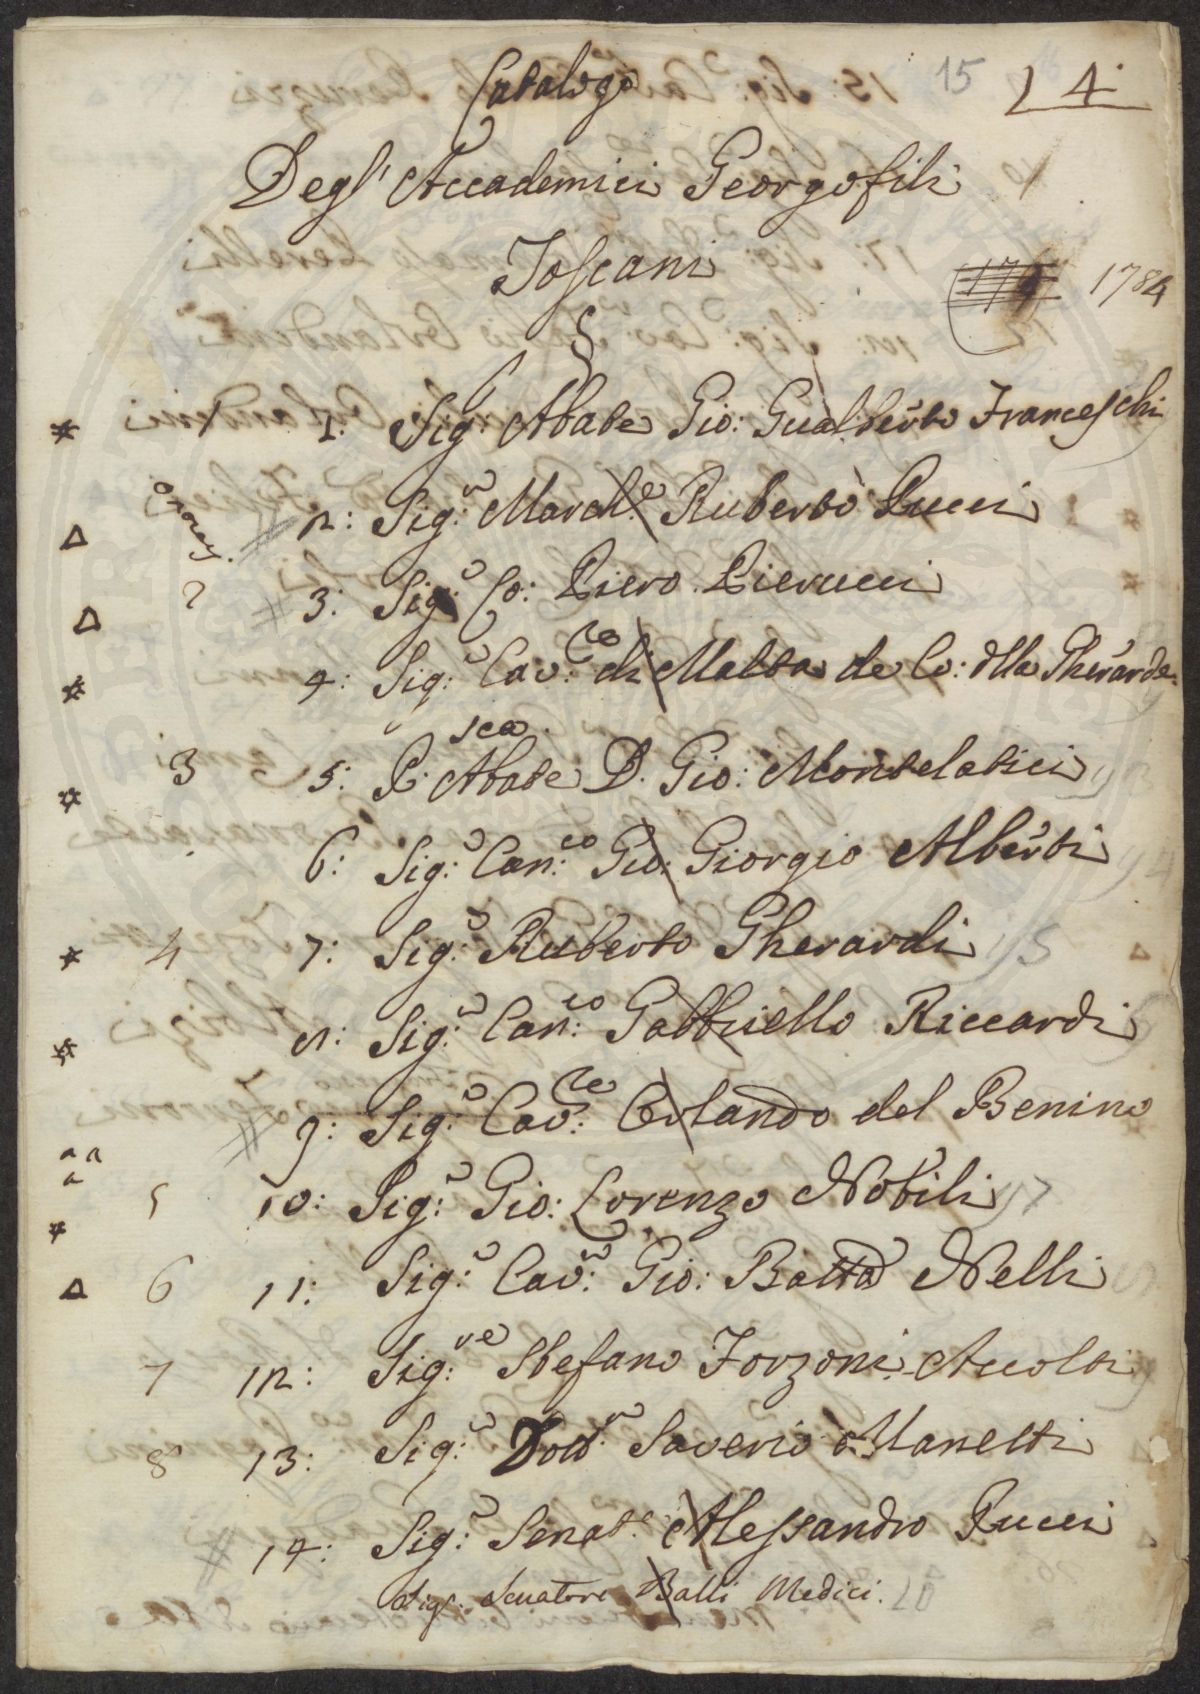 15 4
Catalogo
Degl' Accademici Georgofili
Toscani
1784
1: Sig.r Abate Gio: Gualberto Franceschi
2: Sig.r March.e Ruberto Pucci
3: Sig.r Co: Piero Pierucci
4: Sig.r Cav.re di Malta de Co: dlla Gherarde=
sca
3 5: P. Abate D. Gio: Montelatici
6: Sig.r Can.co Gio: Giorgio Alberti
4 7: Sig.r Ruberto Gherardi
8: Sig.r Can.co Gabbriello Riccardi
9: Sig.r Cav.re Orlando del Benino
5 10: Sig.r Gio: Lorenzo Nobili
6 11: Sig.r Cav.r Gio: Batta Nelli
7 12: Sig.re Stefano Forzoni Accolti
8 13: Sig.r Dott.r Saverio Manetti
14: Sig.r Senat.e Alessandro Pucci
Sig.r Senatore Balli Medici.